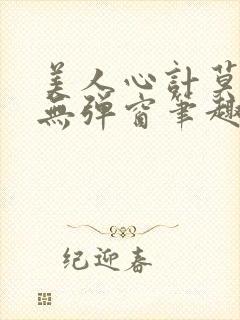 美人心計莫
無彈窗筆趣
纪迎春